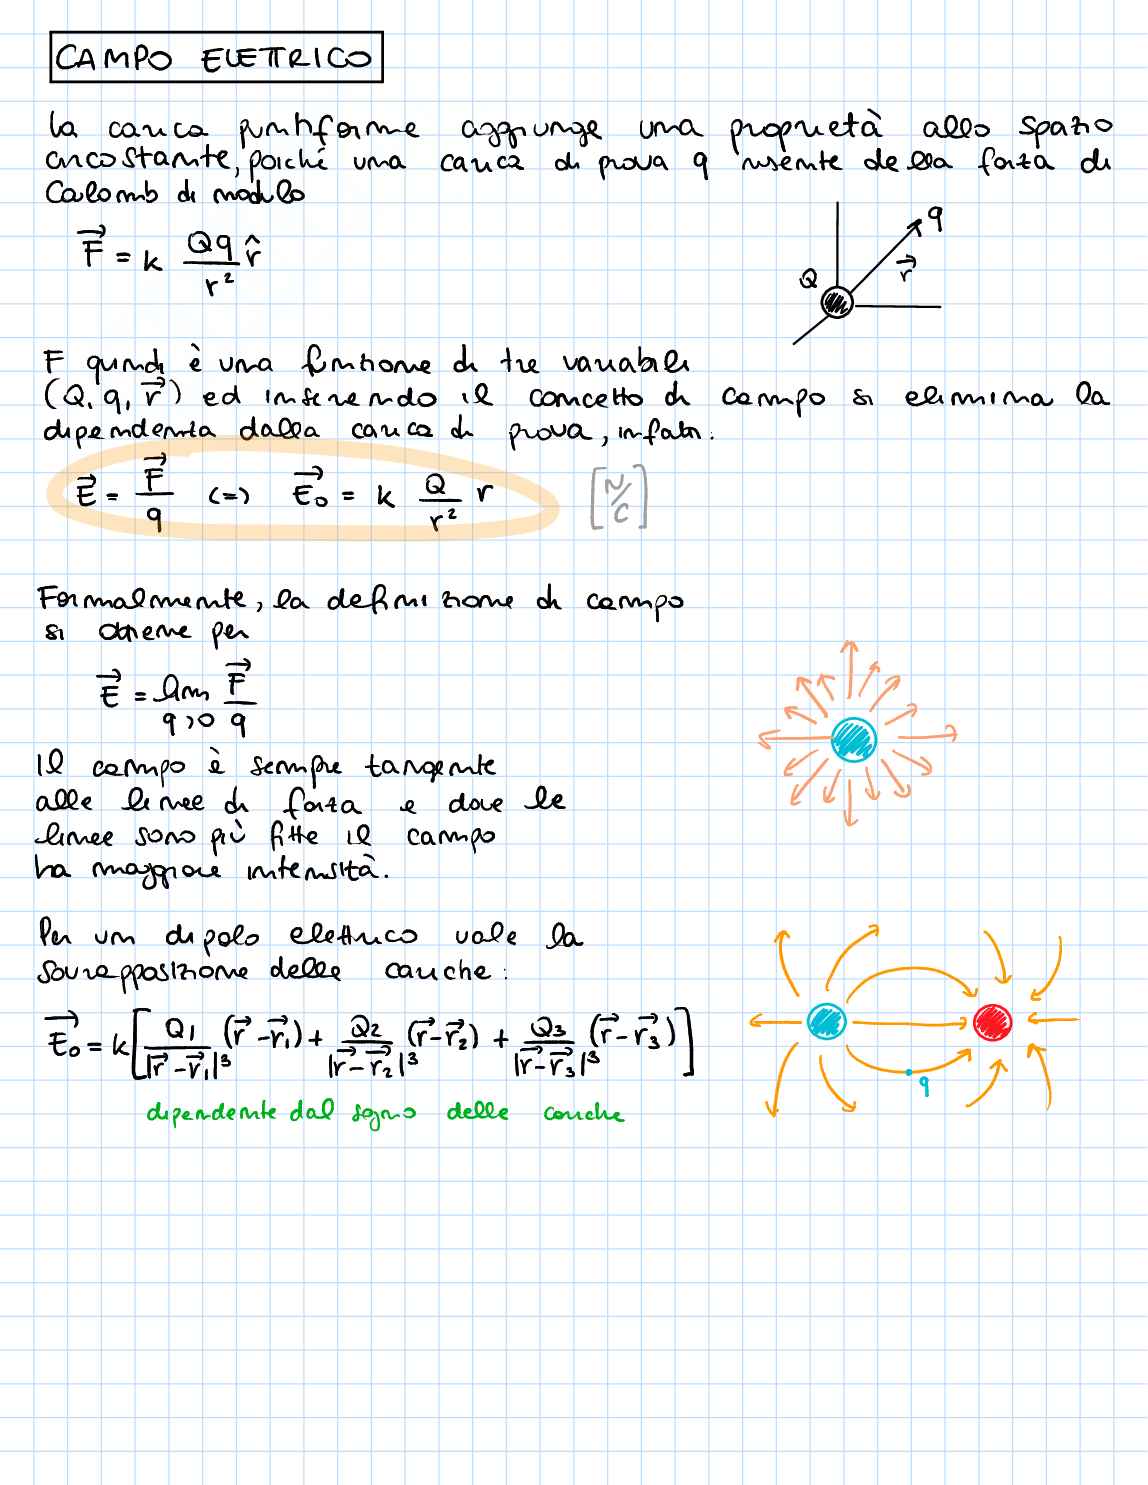 CAMPO ELETTRICO
La carica puntiforme aggiunge una proprietà allo spazio
circostante, poiché una carica di prova q risente della forza di
Coulomb di modulo
F⃗ = k Qq/r² r̂
q
Q
r⃗
F quindi è una funzione di tre variabili
(Q, q, r⃗) ed inserendo il concetto di campo si elimina la
dipendenza dalla carica di prova, infatti:
E⃗ = F⃗/q (=) E⃗₀ = k Q/r² r [N/C]
Formalmente, la definizione di campo
si ottiene per
E⃗ = lim q→0 F⃗/q
Il campo è sempre tangente
alle linee di forza e dove le
linee sono più fitte il campo
ha maggiore intensità.
Per un dipolo elettrico vale la
sovrapposizione delle cariche:
E⃗₀ = k[Q1/|r⃗-r⃗₁|³ (r⃗-r⃗₁) + Q2/|r⃗-r⃗₂|³ (r⃗-r⃗₂) + Q3/|r⃗-r⃗₃|³ (r⃗-r⃗₃)]
q
dipendente dal segno delle cariche